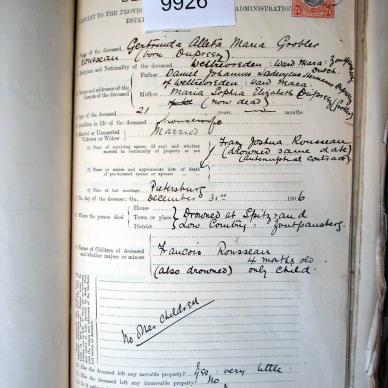 9926
PURSUANT TO THE PROVISIONS
ADMINISTRATION
ESTATE
Name of the deceased Gertruida Alleta Maria Grobler
Rousseau (born Duprey)
Birthplace and Nationality of the deceased Welteorsden: Ward Mara: Zoutpansberg
Dutch.
Names and addresses of the Parents of the deceased
Father Daniel Johannes
of Welteorsden: Ward Mara
Mother Maria Sophia Elizabeth Duprey (Grobler)
(now dead)
Age of the deceased 21 years months
Condition in life of the deceased housewife
Married or Unmarried
Widower or Widow
Married
Name of surviving spouse (if any) and whether married in community of property or not
Franz Joshua Rousseau
(drowned same date)
(antenuptial contract)
Name or names and approximate date of death of pre-deceased spouse or spouses
Place of last marriage Pietersburg
The day of the decease: On December 31st 1906
Where the person died
House
Town or place
District
Drowned at Spitzrand
Low Country: Zoutpansberg
Names of Children of deceased and whether majors or minors
Francois Rousseau
4 months old
(also drowned) only child.
No other children
Has the deceased left any movable property? £50: very little
Has the deceased left any immovable property? No